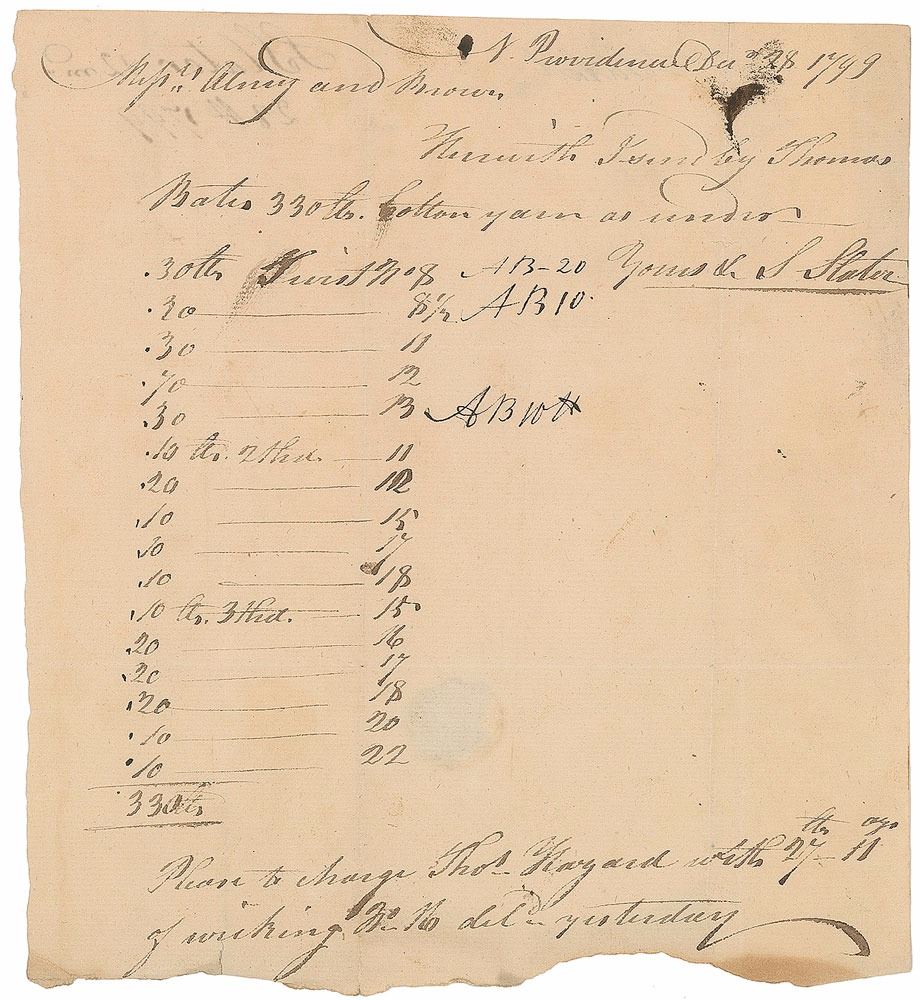 N. Providence Decr 28 1799
Messrs. Almy and Brown
Herewith I send by Thomas
Bates 330 lbs. Cotton yarn as under
30 lbs Twist No 8 AB-20 Yours &c S Slater
20 8 1/2 AB 10
30 11
70 12
30 13 AB 10 lb
10 lbs. 2 thrd. 11
20 12
10 15
10 17
10 18
10 lbs. 3 thrd. 15
20 16
20 17
20 18
10 20
10 22
330 lbs
lbs ozs
Please to charge Thos. Hazard with 27 - 11
of wicking No. 16 deld. yesterday